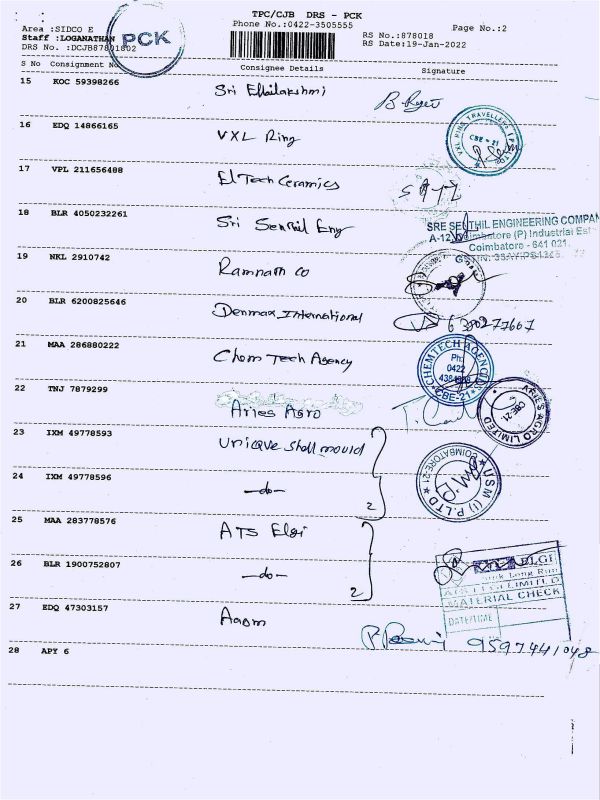 TPC/CJB DRS - PCK
Phone No.:0422-3505555
Page No.:2
Area :SIDCO E
RS No.:878018
Staff :LOGANATHAN
RS Date:19-Jan-2022
PCK
S No Consignment No Consignee Details Signature
15 KOC 59398266 Sri
16 EDQ 14866165 VXL Ring
CBE - 21
17 VPL 211656488 El Tech Ceramics
18 BLR 4050232261 Sri Senthil Eng
SRE SENTHIL ENGINEERING COMPAN
Coimbatore (P) Industrial Est
Coimbatore - 641 021.
19 NKL 2910742 Ramnath co
20 BLR 6200825646 Denmax International
6380277607
21 MAA 286880222 Chem Tech Agency
CHEMTECH AGENCIES
Ph:
0422
CBE-21
22 TNJ 7879299 Aries Agro
ARIES AGRO LIMITED
CBE-21.
23 IXM 49778593 Unique Shell mould
24 IXM 49778596 -do- 2
USM (I) P.LTD
COIMBATORE-21
25 MAA 283778576 ATS Elgi
26 BLR 1900752807 -do- 2
ELGI
MATERIAL CHECK
DATE/TIME
27 EDQ 47303157
9597441048
28 APY 6